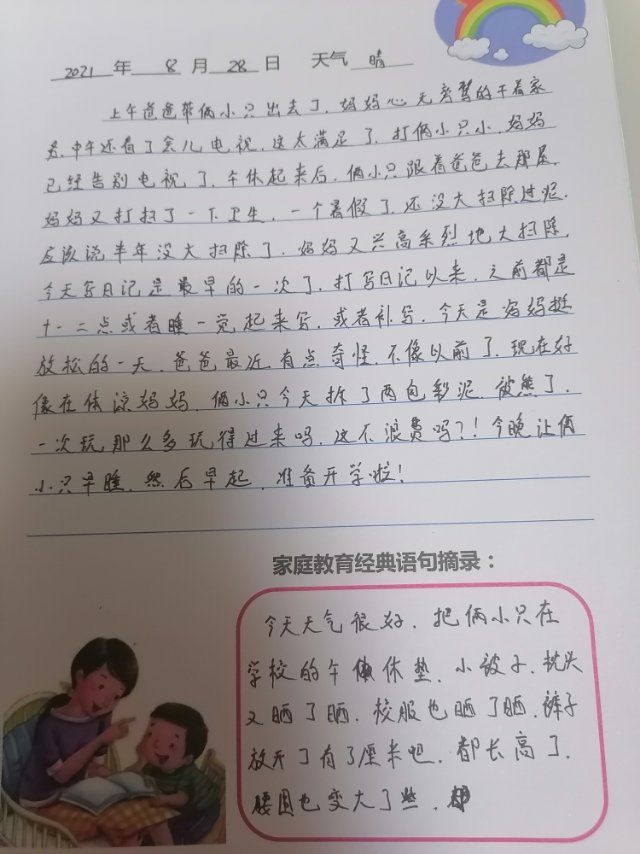 2021 年 8 月 28 日 天气 晴
上午爸爸带俩小只出去了，妈妈心无旁骛的干着家
务，中午还看了会儿电视，这太满足了，打俩小只小，妈妈
已经告别电视了，午休起来后，俩小只跟着爸爸去那屋，
妈妈又打扫了一下卫生，一个暑假了，还没大扫除过呢，
应该说半年没大扫除了，妈妈又兴高采烈地大扫除，
今天写日记是最早的一次了，打写日记以来，之前都是
十一、二点或者睡一觉起来写，或者补写，今天是妈妈挺
放松的一天，爸爸最近有点奇怪，不像以前了，现在好
像在体谅妈妈，俩小只今天拆了两包彩泥，被熊了，
一次玩那么多玩得过来吗，这不浪费吗？！今晚让俩
小只早睡，然后早起，准备开学啦！
家庭教育经典语句摘录：
今天天气很好，把俩小只在
学校的午休垫，小被子，枕头
又晒了晒，校服也晒了晒，裤子
放开了有了厘米吧，都长高了，
腰围也变大了些，